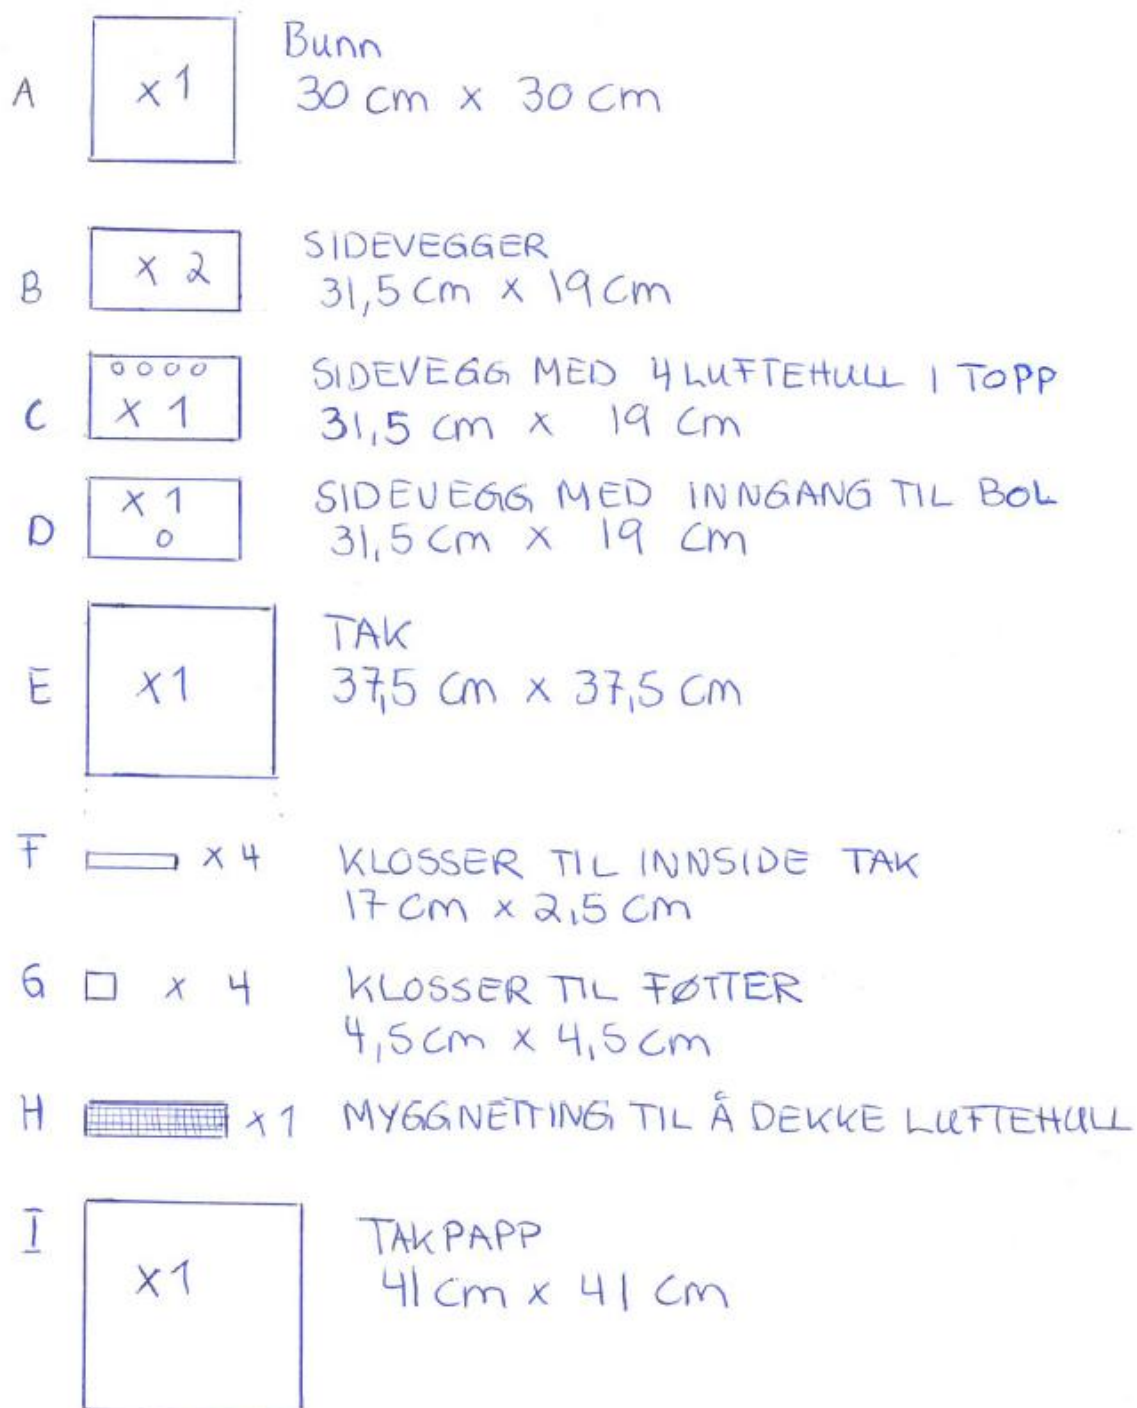 A x 1 Bunn
30 cm x 30 cm
B x 2 SIDEVEGGER
31,5 cm x 19 cm
C x 1 SIDEVEGG MED 4 LUFTEHULL I TOPP
31,5 cm x 19 cm
D x 1 SIDEVEGG MED INNGANG TIL BOL
31,5 cm x 19 cm
E x1 TAK
37,5 cm x 37,5 cm
F x 4 KLOSSER TIL INNSIDE TAK
17 cm x 2,5 cm
G x 4 KLOSSER TIL FØTTER
4,5 cm x 4,5 cm
H x 1 MYGGNETTING TIL Å DEKKE LUFTEHULL
I x1 TAKPAPP
41 cm x 41 cm